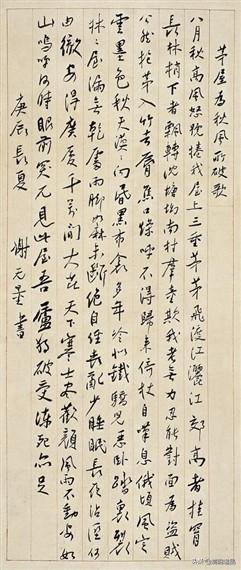 茅屋為秋風所破歌
八月秋高風怒號捲我屋上三重茅茅飛渡江灑江郊高者挂罥
長林梢下者飄轉沈塘坳南村群童欺我老無力忍能對面為盜賊
公然抱茅入竹去脣焦口燥呼不得歸來倚杖自嘆息俄頃風定
雲墨色秋天漠〻向昏黑布衾多年冷似鐵驕兒惡臥踏裏裂
牀〻屋漏無乾處雨腳如麻未斷絕自經喪亂少睡眠長夜沾溼何
由徹安得廣廈千萬間大庇天下寒士俱歡顏風雨不動安如
山嗚呼何時眼前突兀見此屋吾廬獨破受凍死亦足
庚辰長夏 謝无量書